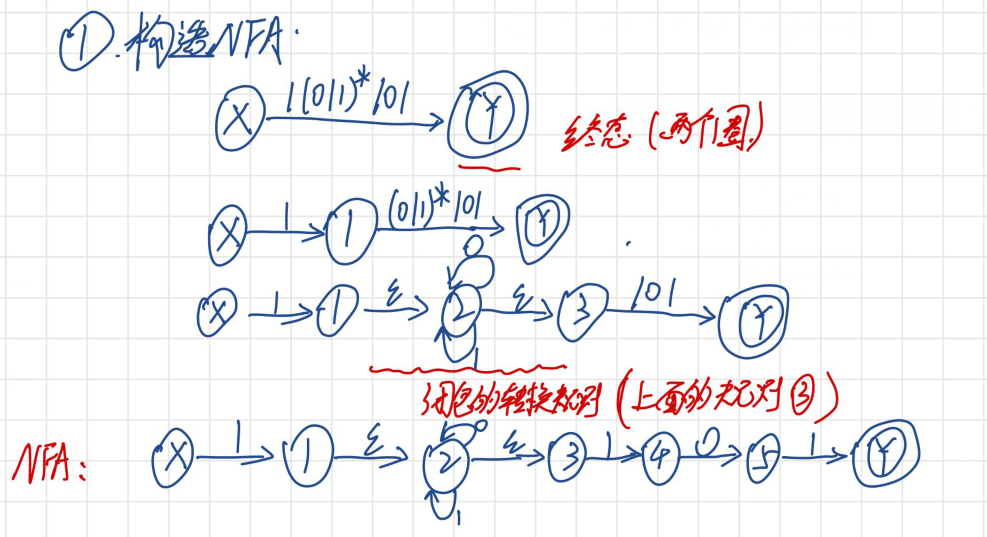 ①.构造NFA.
X 1(0|1)*101 Y 终态(两个圈)
X 1 1 (0|1)*101 Y
X 1 1 ε 2 0 1 ε 3 101 Y
闭包的转换规则(上面的规则③)
NFA: X 1 1 ε 2 0 1 ε 3 1 4 0 5 1 Y